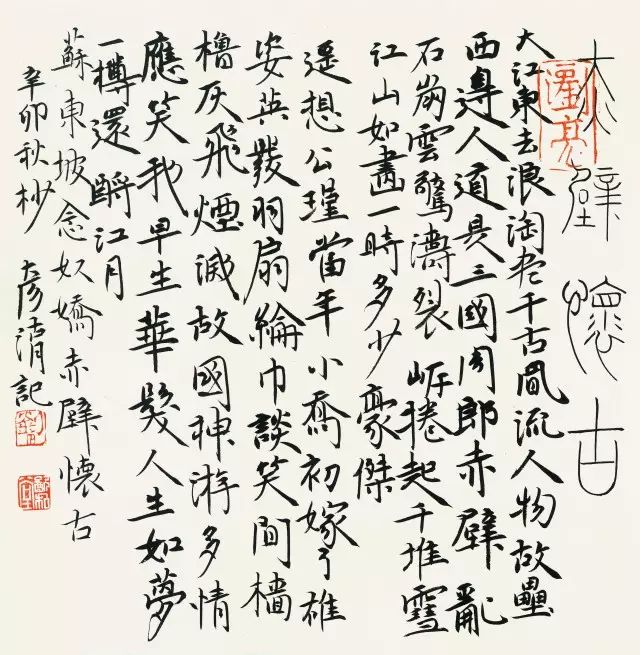 赤壁懷古
大江東去浪淘盡千古風流人物故壘
西邊人道是三國周郎赤壁亂
石崩雲驚濤裂岸捲起千堆雪
江山如畫一時多少豪傑
遙想公瑾當年小喬初嫁了雄
姿英發羽扇綸巾談笑間檣
櫓灰飛煙滅故國神游多情
應笑我早生華髮人生如夢
一樽還酹江月
蘇東坡念奴嬌赤壁懷古
辛卯秋杪 記